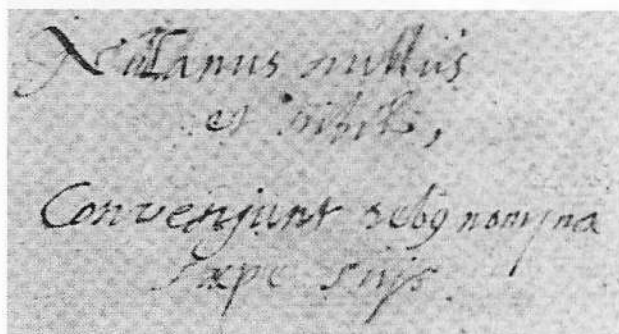 Nullanus nullius
et nihili,
Convenjunt rebꝰ nomina
sæpe suijs.